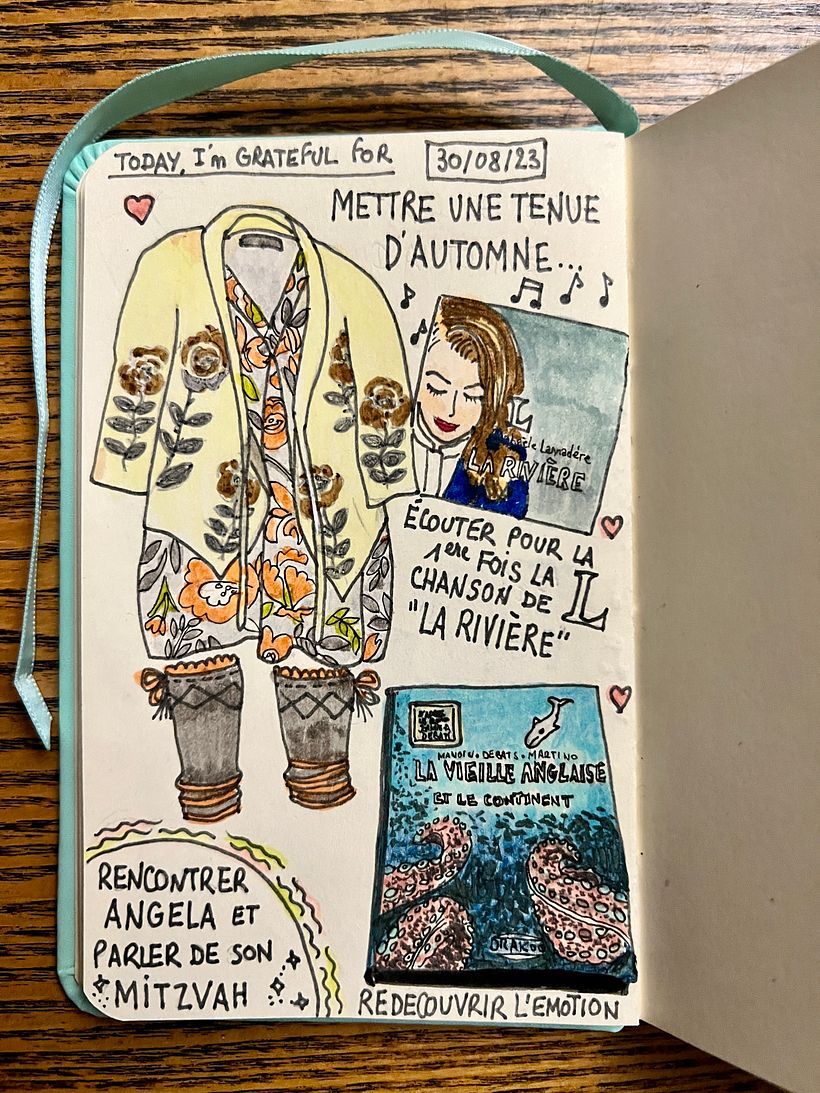 TODAY, I'm GRATEFUL FOR
30/08/23
METTRE UNE TENUE
D'AUTOMNE...
L
Lamadère
LA RIVIÈRE
ÉCOUTER POUR LA
1ere FOIS LA
CHANSON DE L
"LA RIVIÈRE"
MANOIN. DEBATS. MARTINO
LA VIEILLE ANGLAISE
ET LE CONTINENT
DRAKOO
REDECOUVRIR L'EMOTION
RENCONTRER
ANGELA ET
PARLER DE SON
MITZVAH